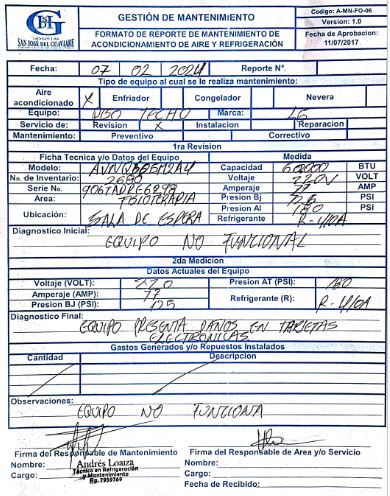 HOSPITAL
SAN JOSE DEL GUAVIARE
GESTIÓN DE MANTENIMIENTO
FORMATO DE REPORTE DE MANTENIMIENTO DE ACONDICIONAMIENTO DE AIRE Y REFRIGERACIÓN
Codigo: A-MN-FO-06
Version: 1.0
Fecha de Aprobacion:
11/07/2017
Fecha: 07 02 2024 Reporte Nº.
Tipo de equipo al cual se le realiza mantenimiento:
Aire acondicionado X Enfriador Congelador Nevera
Equipo: PISO TECHO Marca: LG
Servicio de: Revision X Instalacion Reparacion
Mantenimiento: Preventivo Correctivo
1ra Revision
Ficha Tecnica y/o Datos del Equipo Medida
Modelo: Capacidad 60000 BTU
No. de Inventario: 2680 Voltaje 220V VOLT
Serie No. Amperaje 77 AMP
Area: FISIOTERAPIA Presion Bj PSI
Ubicación: SALA DE ESPERA Presion Al 180 PSI
Refrigerante R-410A
Diagnostico Inicial:
EQUIPO NO FUNCIONAL
2da Medicion
Datos Actuales del Equipo
Voltaje (VOLT): 220 Presion AT (PSI): 180
Amperaje (AMP): 77 Refrigerante (R): R-410A
Presion BJ (PSI): 125
Diagnostico Final:
EQUIPO PRESENTA DAÑOS EN TARJETAS
ELECTRONICAS
Gastos Generados y/o Repuestos Instalados
Cantidad Descripcion
Observaciones:
EQUIPO NO FUNCIONA
Firma del Responsable de Mantenimiento Firma del Responsable de Area y/o Servicio
Nombre: Andrés Loaiza Nombre:
Técnico en Refrigeración
y Mantenimiento
Cargo: Rg. 7950769 Cargo:
Fecha de Recibido: